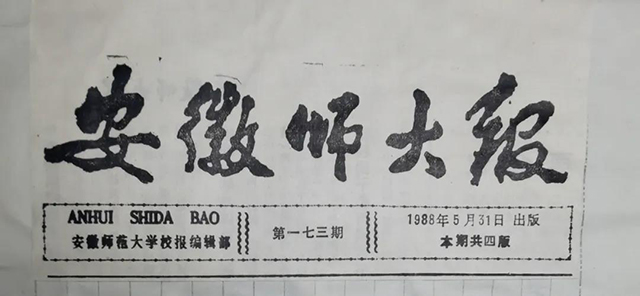 安徽师大报
ANHUI SHIDA BAO
安徽师范大学校报编辑部
第一七三期
1988年5月31日 出版
本期共四版